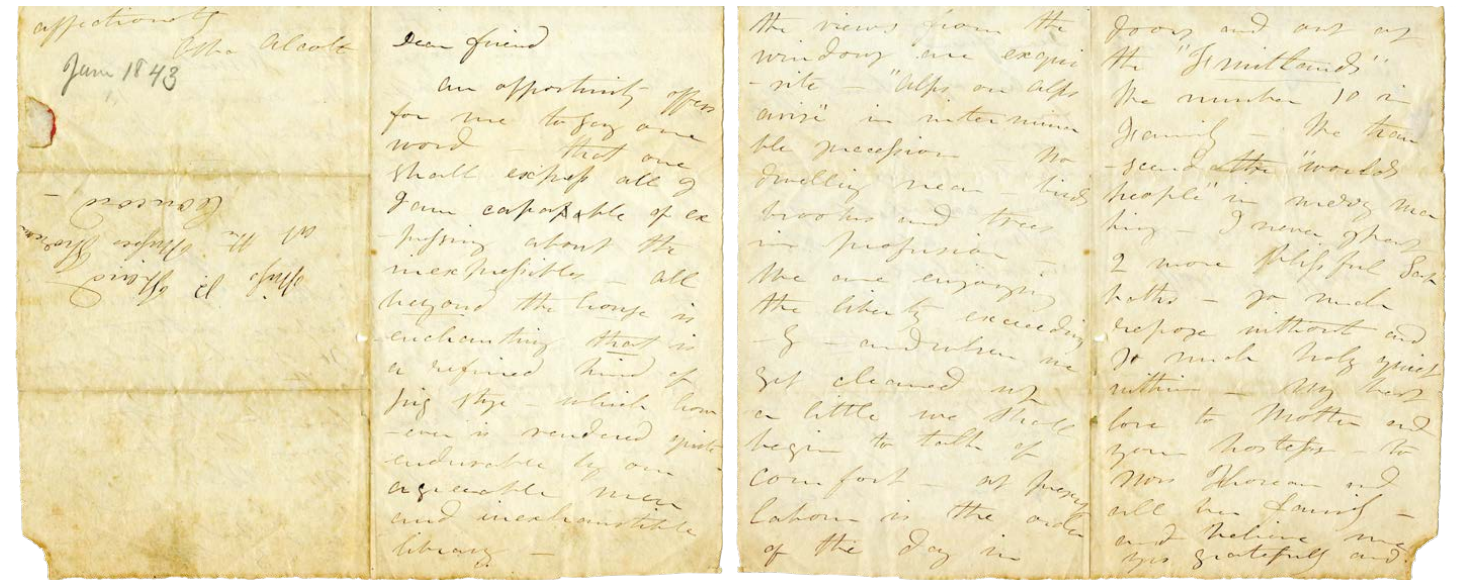 Dear friend
an opportunity offers
for me to say one
word — that one
shall express all I
I am capable of ex
-pressing about the
inexpressibles — all
beyond the house is
enchanting that is
a refined kind of
pig stye — which how
-ever is rendered quite
endurable by our
agreeable men
and inexhaustible
library —
the views from the
windows are exqui
-site — "Alps on Alps
arise" in intermina
ble precession no
dwelling near — birds
brooks and trees
in profusion —
We are enjoying
the liberty exceeding
-ly — and when we
get cleaned up
a little we shall
begin to talk of
comfort — at present
labour is the order
of the day in
doors and out at
the "Fruitlands"
We number 10 in
family — We tran
-scend the "worlds
people" in
I never
2 more blissful Sab
baths — so much
repose without and
so much holy quiet
within — My best
love to Mother and
your hostess — to
Mrs Thoreau and
all her family —
and believe me
yrs gratefully and
affectionately
Alcott
June 1843
Miss
at the Misses
Concord —